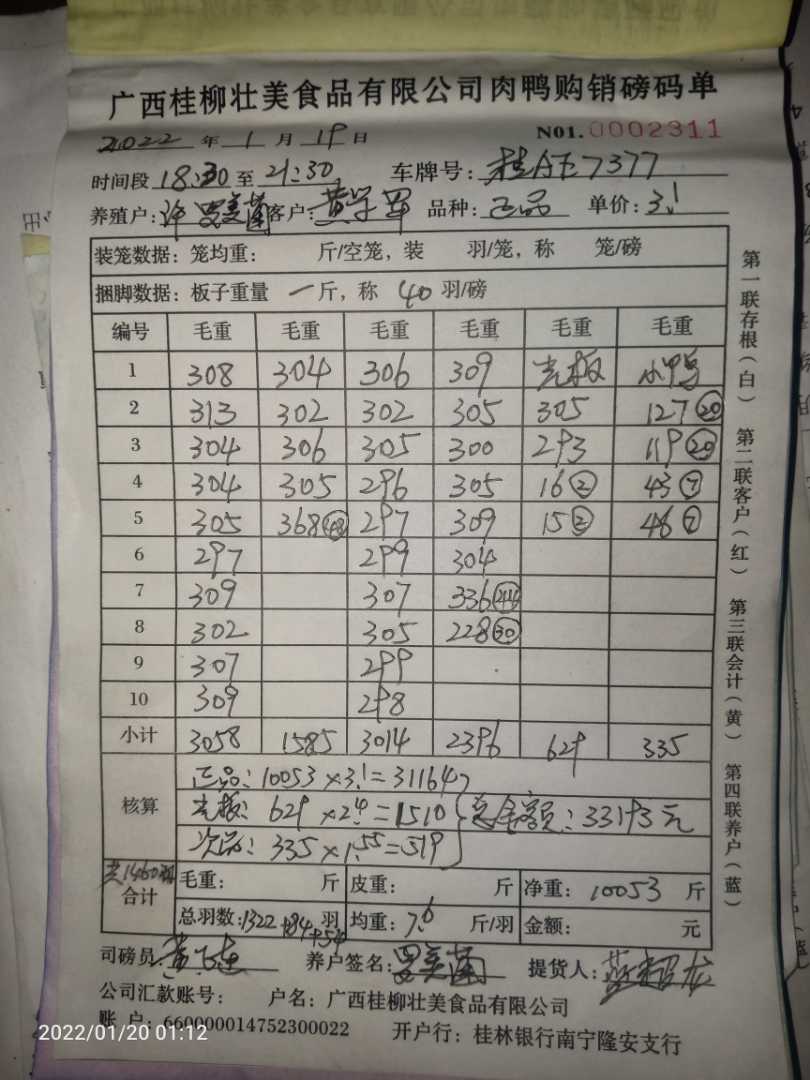 广西桂柳壮美食品有限公司肉鸭购销磅码单
2022 年 1 月 19 日 N01.0002311
时间段 18:30 至 21:30 车牌号: 7377
养殖户: 许 罗美菌 客户: 黄学军 品种: 正品 单价: 3.1
装笼数据: 笼均重: 斤/空笼, 装 羽/笼, 称 笼/磅
捆脚数据: 板子重量 一斤, 称 40 羽/磅
编号 毛重 毛重 毛重 毛重 毛重 毛重
1 308 304 306 309 光板 小鸭
2 313 302 302 305 305 127 ⑳
3 304 306 305 300 293 119 ⑳
4 304 305 296 305 16 ② 43 ⑦
5 305 368 ㊽ 297 309 15 ② 46 ⑦
6 297 299 304
7 309 307 336 ㊹
8 302 305 228 ㉚
9 307 299
10 309 298
小计 3058 1585 3014 2396 629 335
核算
正品: 10053×3.1=31164
光板: 629×2.4=1510 总金额: 33193元
次品: 335×1.55=519
共1460羽
合计
毛重: 斤 皮重: 斤 净重: 10053 斤
总羽数: 1322+84+54 羽 均重: 7.6 斤/羽 金额: 元
司磅员: 养户签名: 罗美菌 提货人:
公司汇款账号: 户名: 广西桂柳壮美食品有限公司
账 户: 660000014752300022 开户行: 桂林银行南宁隆安支行
第一联存根(白) 第二联客户(红) 第三联会计(黄) 第四联养户(蓝)
2022/01/20 01:12